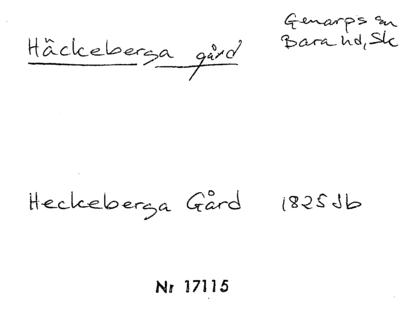 Häckeberga gård
Genarps sn
Bara hd, Sk
Heckeberga Gård 1825 Jb
Nr 17115